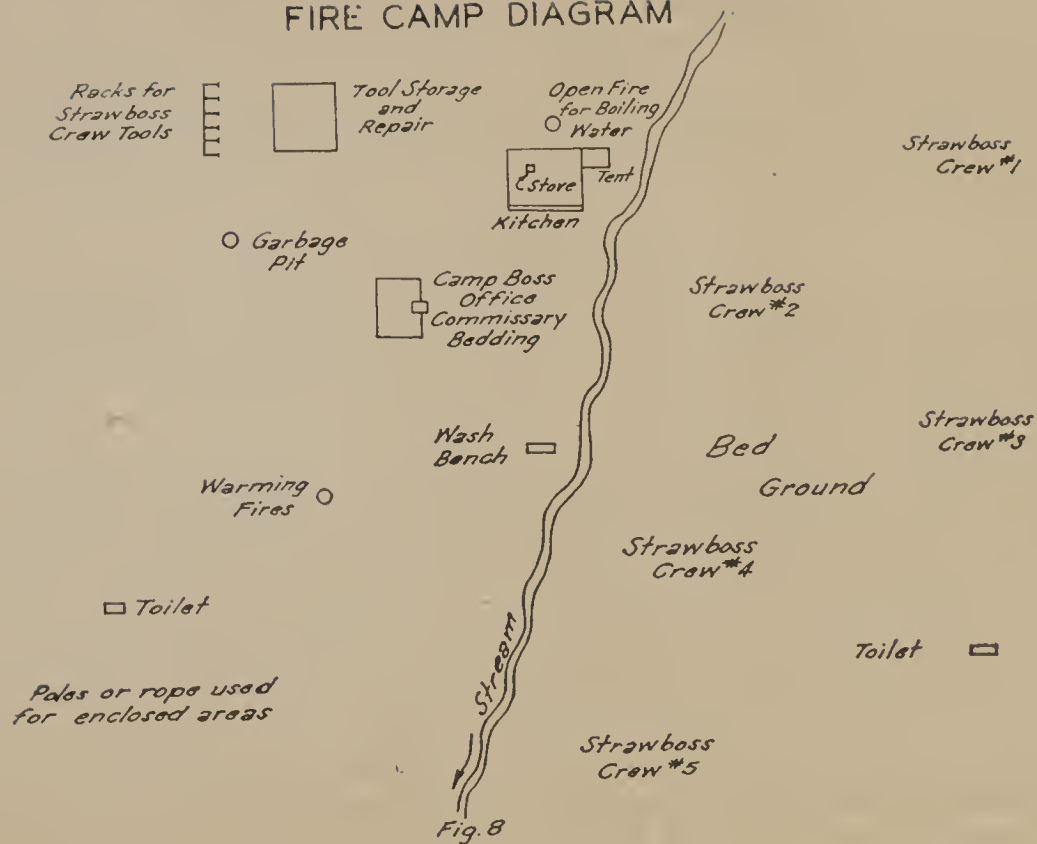 FIRE CAMP DIAGRAM
Racks for
Strawboss
Crew Tools
Tool Storage
and
Repair
Open Fire
for Boiling
Water
Stove
Tent
Kitchen
Strawboss
Crew #1
Garbage
Pit
Camp Boss
Office
Commissary
Bedding
Strawboss
Crew #2
Wash
Bench
Bed
Ground
Strawboss
Crew #3
Warming
Fires
Strawboss
Crew #4
Toilet
Stream
Toilet
Poles or rope used
for enclosed areas
Strawboss
Crew #5
Fig. 8